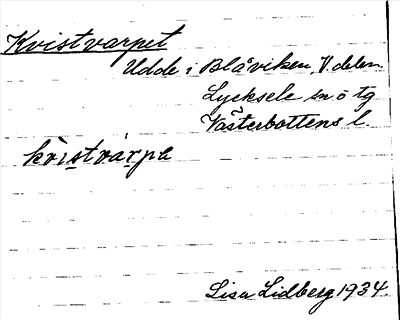 Kvistvarpet
Udde i Blåviken, V delen.
Lycksele sn o tg
Västerbottens l.
kvìstvàrpe
Lisa Lidberg 1934.